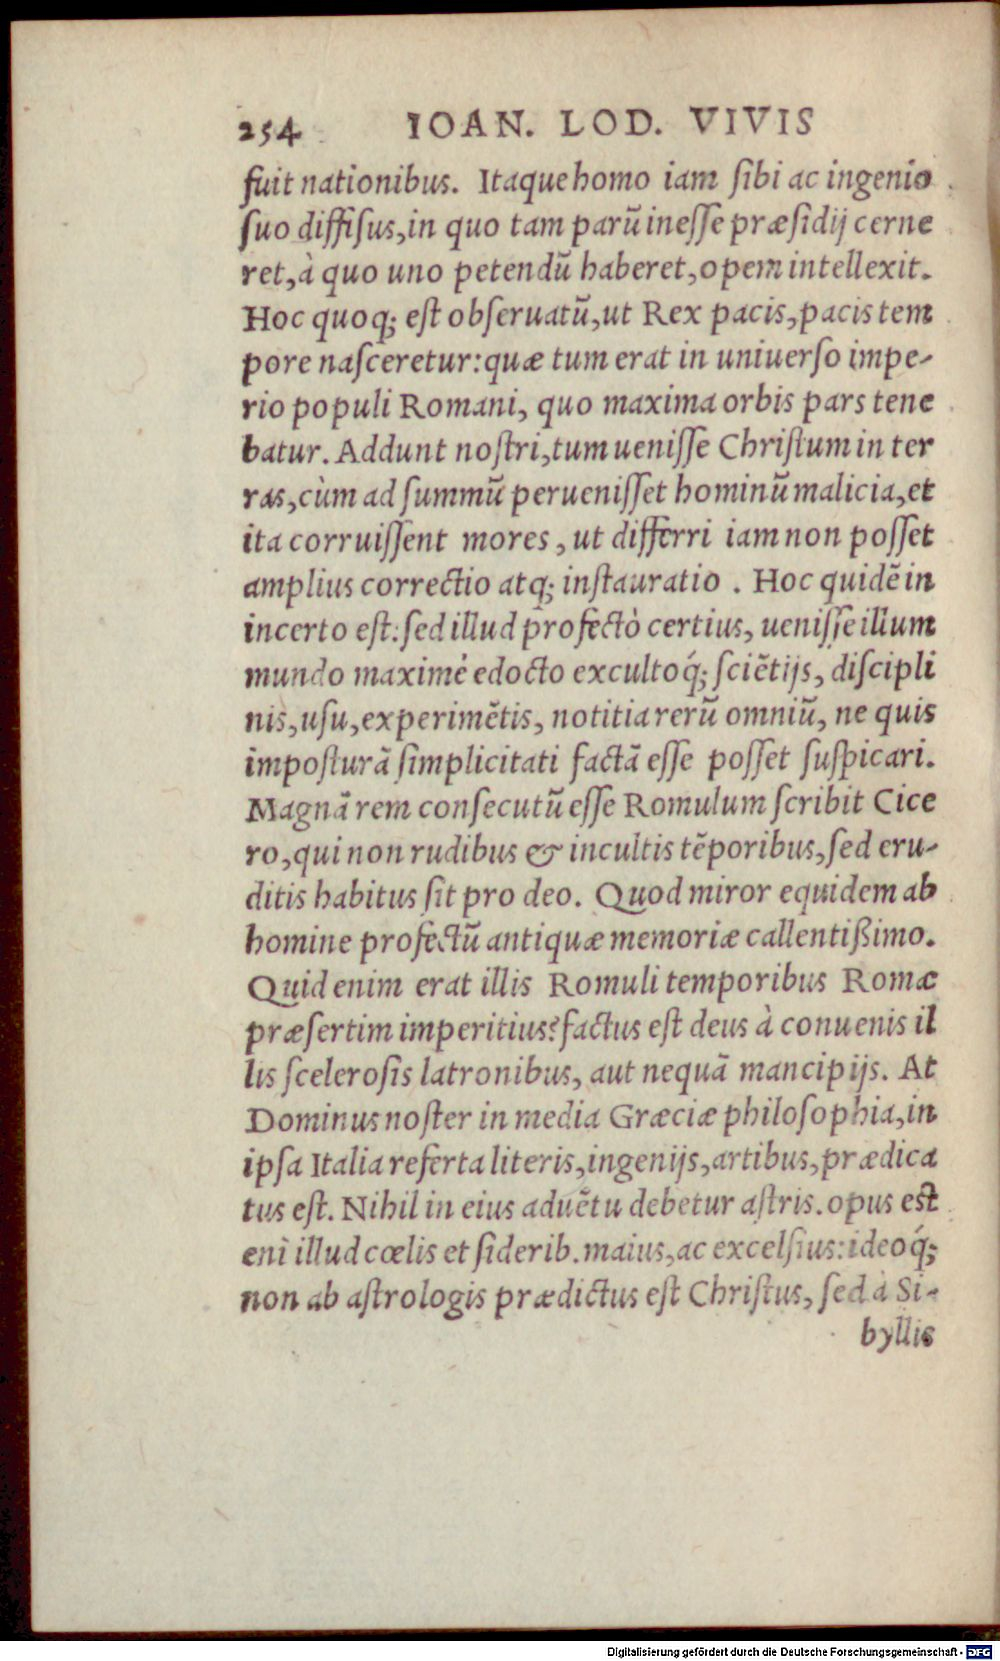 254 IOAN. LOD. VIVIS
fuit nationibus. Itaque homo iam ſibi ac ingenio
ſuo diffiſus, in quo tam parũ ineſſe præſidij cerne
ret, à quo uno petendũ haberet, opem intellexit.
Hoc quoq; eſt obſeruatũ, ut Rex pacis, pacis tem
pore naſceretur: quæ tum erat in uniuerſo impe-
rio populi Romani, quo maxima orbis pars tene
batur. Addunt noſtri, tum ueniſſe Chriſtum in ter
ras, cùm ad ſummũ perueniſſet hominũ malicia, et
ita corruiſſent mores, ut differri iam non poſſet
amplius correctio atq; inſtauratio. Hoc quidẽ in
incerto eſt: ſed illud profectò certius, ueniſſe illum
mundo maximè edocto excultoq́; ſciẽtijs, diſcipli
nis, uſu, experimẽtis, notitia rerũ omniũ, ne quis
impoſturã ſimplicitati factã eſſe poſſet ſuſpicari.
Magnã rem conſecutũ eſſe Romulum ſcribit Cice
ro, qui non rudibus & incultis tẽporibus, ſed eru-
ditis habitus ſit pro deo. Quod miror equidem ab
homine profectũ antiquæ memoriæ callentißimo.
Quid enim erat illis Romuli temporibus Romæ
præſertim imperitius? factus eſt deus à conuenis il
lis ſceleroſis latronibus, aut nequã mancipijs. At
Dominus noſter in media Græciæ philoſophia, in
ipſa Italia referta literis, ingenijs, artibus, prædica
tus eſt. Nihil in eius aduẽtu debetur aſtris. opus eſt
enĩ illud cœlis et ſiderib. maius, ac excelſius: ideoq́;
non ab aſtrologis prædictus eſt Chriſtus, ſed à Si-
byllis
Digitalisierung gefördert durch die Deutsche Forschungsgemeinschaft - DFG